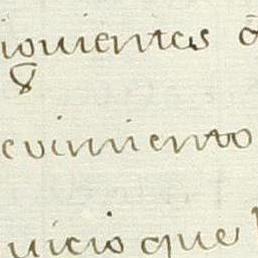 iguientes
evimiento
uicio que